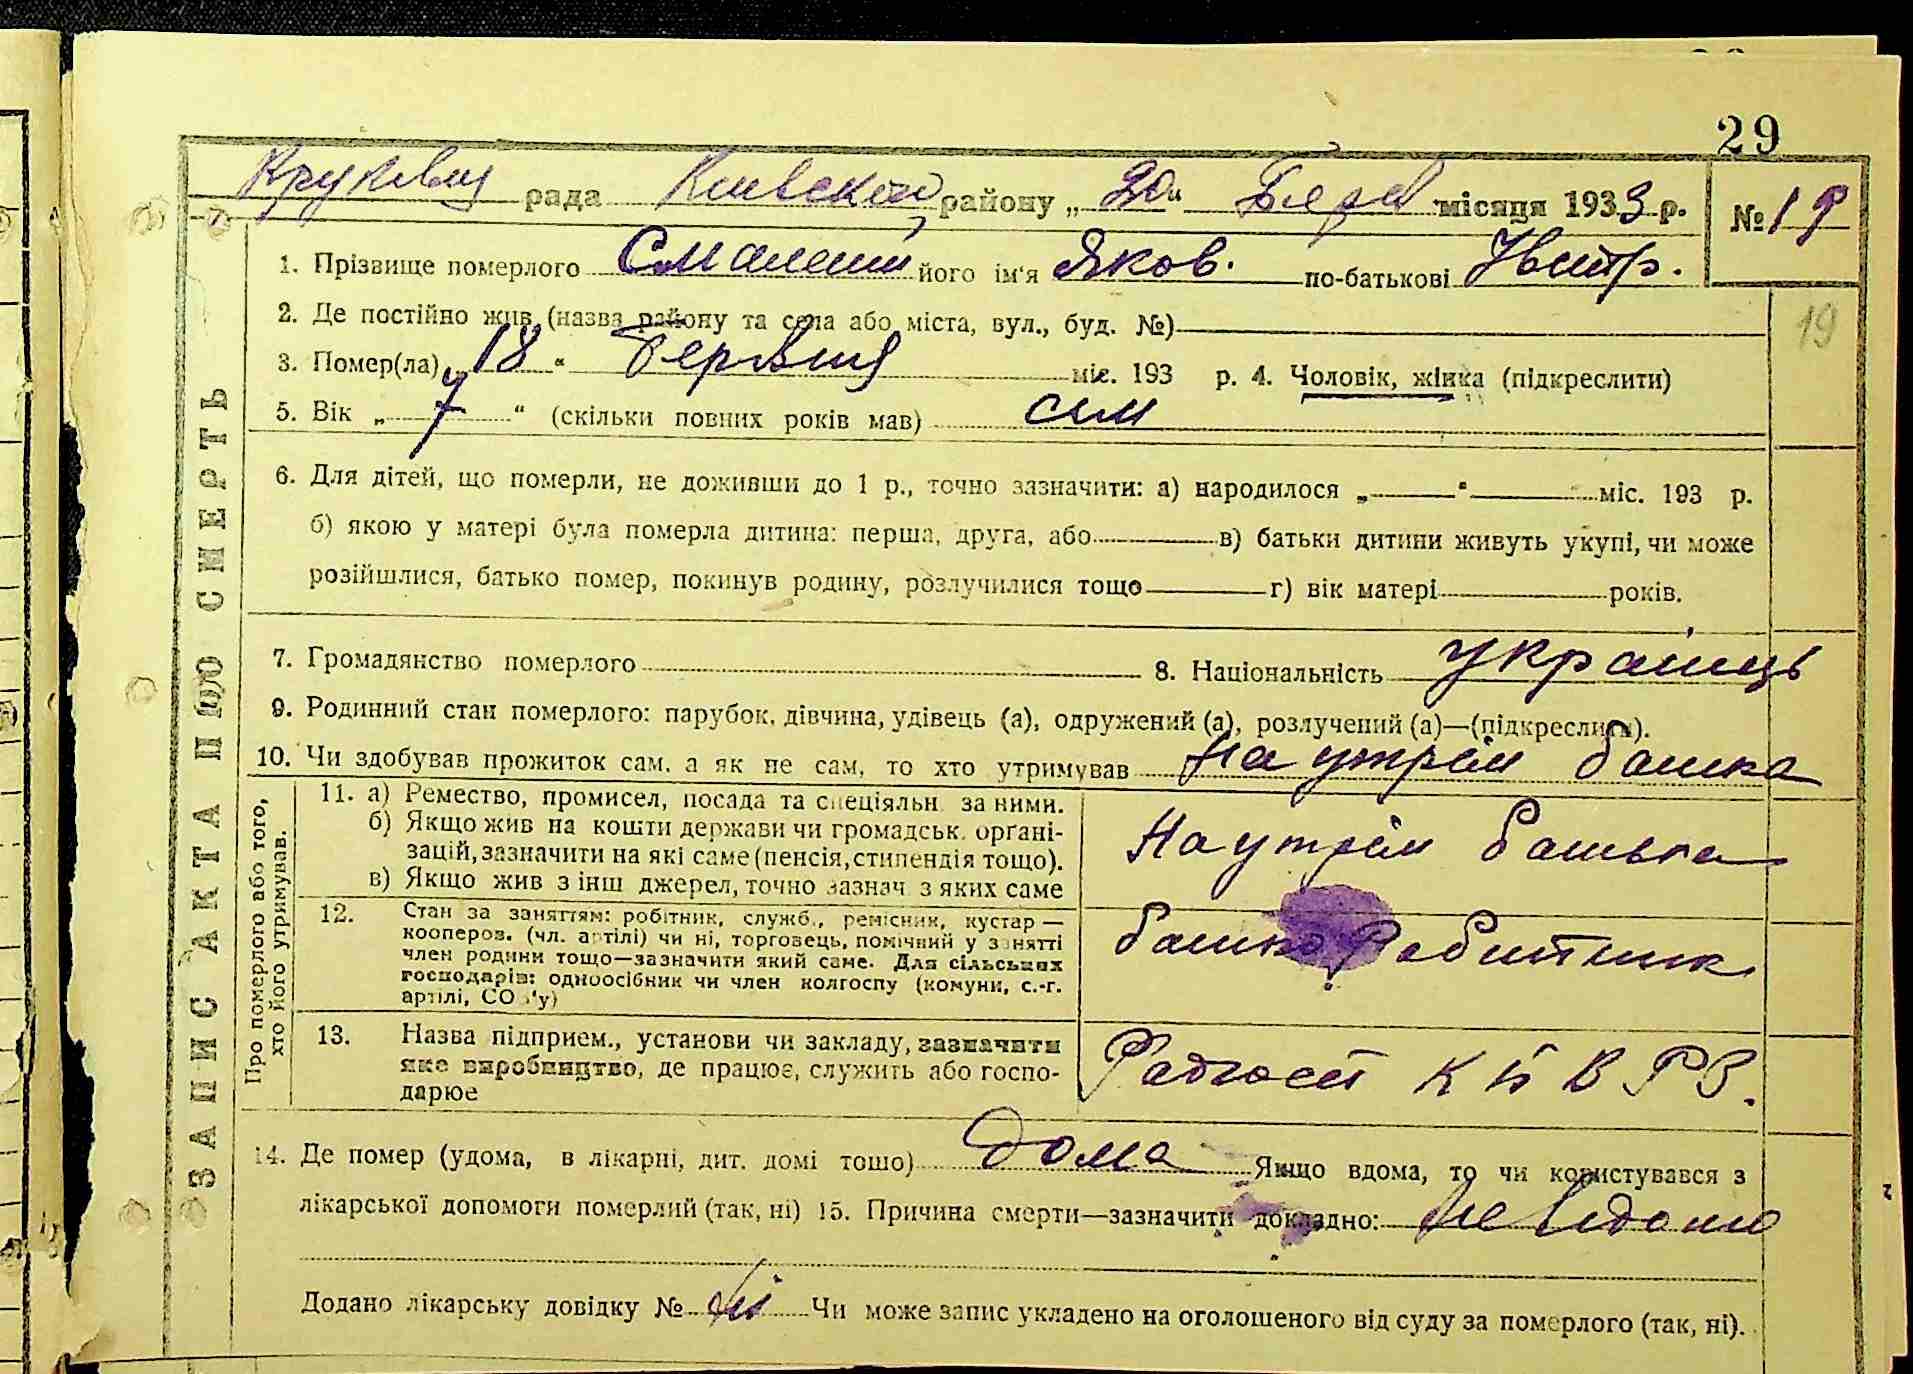 29
рада Киевского району „ 20 “ Берез місяця 1933 р. № 19
1. Прізвище померлого його ім'я Яков. по-батькові
19
2. Де постійно жив (назва району та села або міста, вул., буд. №)
3. Помер(ла) „ 18 “ березня міс. 193 р. 4. Чоловік, жінка (підкреслити)
5. Вік „ 7 “ (скільки повних років мав) сім
6. Для дітей, що померли, не доживши до 1 р., точно зазначити: а) народилося „ “ міс. 193 р.
б) якою у матері була померла дитина: перша, друга, або в) батьки дитини живуть укупі, чи може
розійшлися, батько помер, покинув родину, розлучилися тощо г) вік матері років.
7. Громадянство померлого 8. Національність українець
9. Родинний стан померлого: парубок, дівчина, удівець (а), одружений (а), розлучений (а)—(підкреслити).
10. Чи здобував прожиток сам, а як не сам, то хто утримував На утрім батька
11. а) Ремество, промисел, посада та спеціяльн. за ними.
б) Якщо жив на кошти держави чи громадськ. органі-
зацій, зазначити на які саме (пенсія, стипендія тощо).
в) Якщо жив з інш джерел, точно зазнач. з яких саме
На утрім батька
12. Стан за заняттям: робітник, служб., ремісник, кустар —
кооперов. (чл. артілі) чи ні, торговець, помічний у занятті
член родини тощо—зазначити який саме. Для сільських
господарів: одноосібник чи член колгоспу (комуни, с.-г.
артілі, СОЗ'у)
батько Робитник
13. Назва підприєм., установи чи закладу, зазначити
яке виробництво, де працює, служить або госпо-
дарює
Радгосп К П В Р З.
14. Де помер (удома, в лікарні, дит. домі тощо) дома Якщо вдома, то чи користувався з
лікарської допомоги померлий (так, ні) 15. Причина смерти—зазначити докладно: не відомо
Додано лікарську довідку № ні Чи може запис укладено на оголошеного від суду за померлого (так, ні).
ЗАПИС АКТА ПРО СМЕРТЬ
Про померлого або того,
хто його утримував.